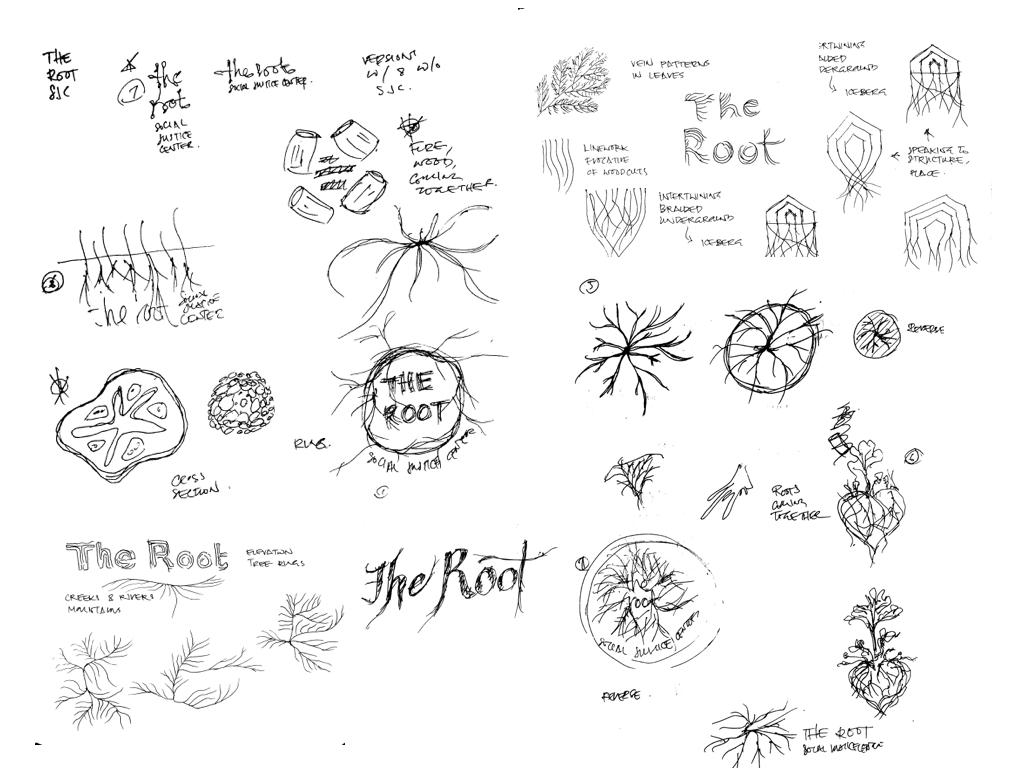 THE
ROOT
SJC
1
the
root
SOCIAL
JUSTICE
CENTER.
the root
SOCIAL JUSTICE CENTER.
VERSIONS
W/ & W/O
SJC.
FIRE,
WOOD,
COMING
TOGETHER.
the root
SOCIAL
JUSTICE
CENTER
CROSS
SECTION.
RING.
THE
ROOT
SOCIAL JUSTICE CENTER
The Root
ELEVATION
TREE RINGS
CREEKS & RIVERS
MOUNTAINS
The Root
VEIN PATTERNS
IN LEAVES
The
Root
LINEWORK
EVOCATIVE
OF WOODCUTS
INTERTWINING
BRAIDED
UNDERGROUND
ICEBERG
ERTWINING
AIDED
DERGROUND
ICEBERG
SPEAKING TO
STRUCTURE,
PLACE.
REVERSE
ROOTS
COMING
TOGETHER
root
SOCIAL JUSTICE CENTER
REVERSE.
THE ROOT
SOCIAL JUSTICE CENTER